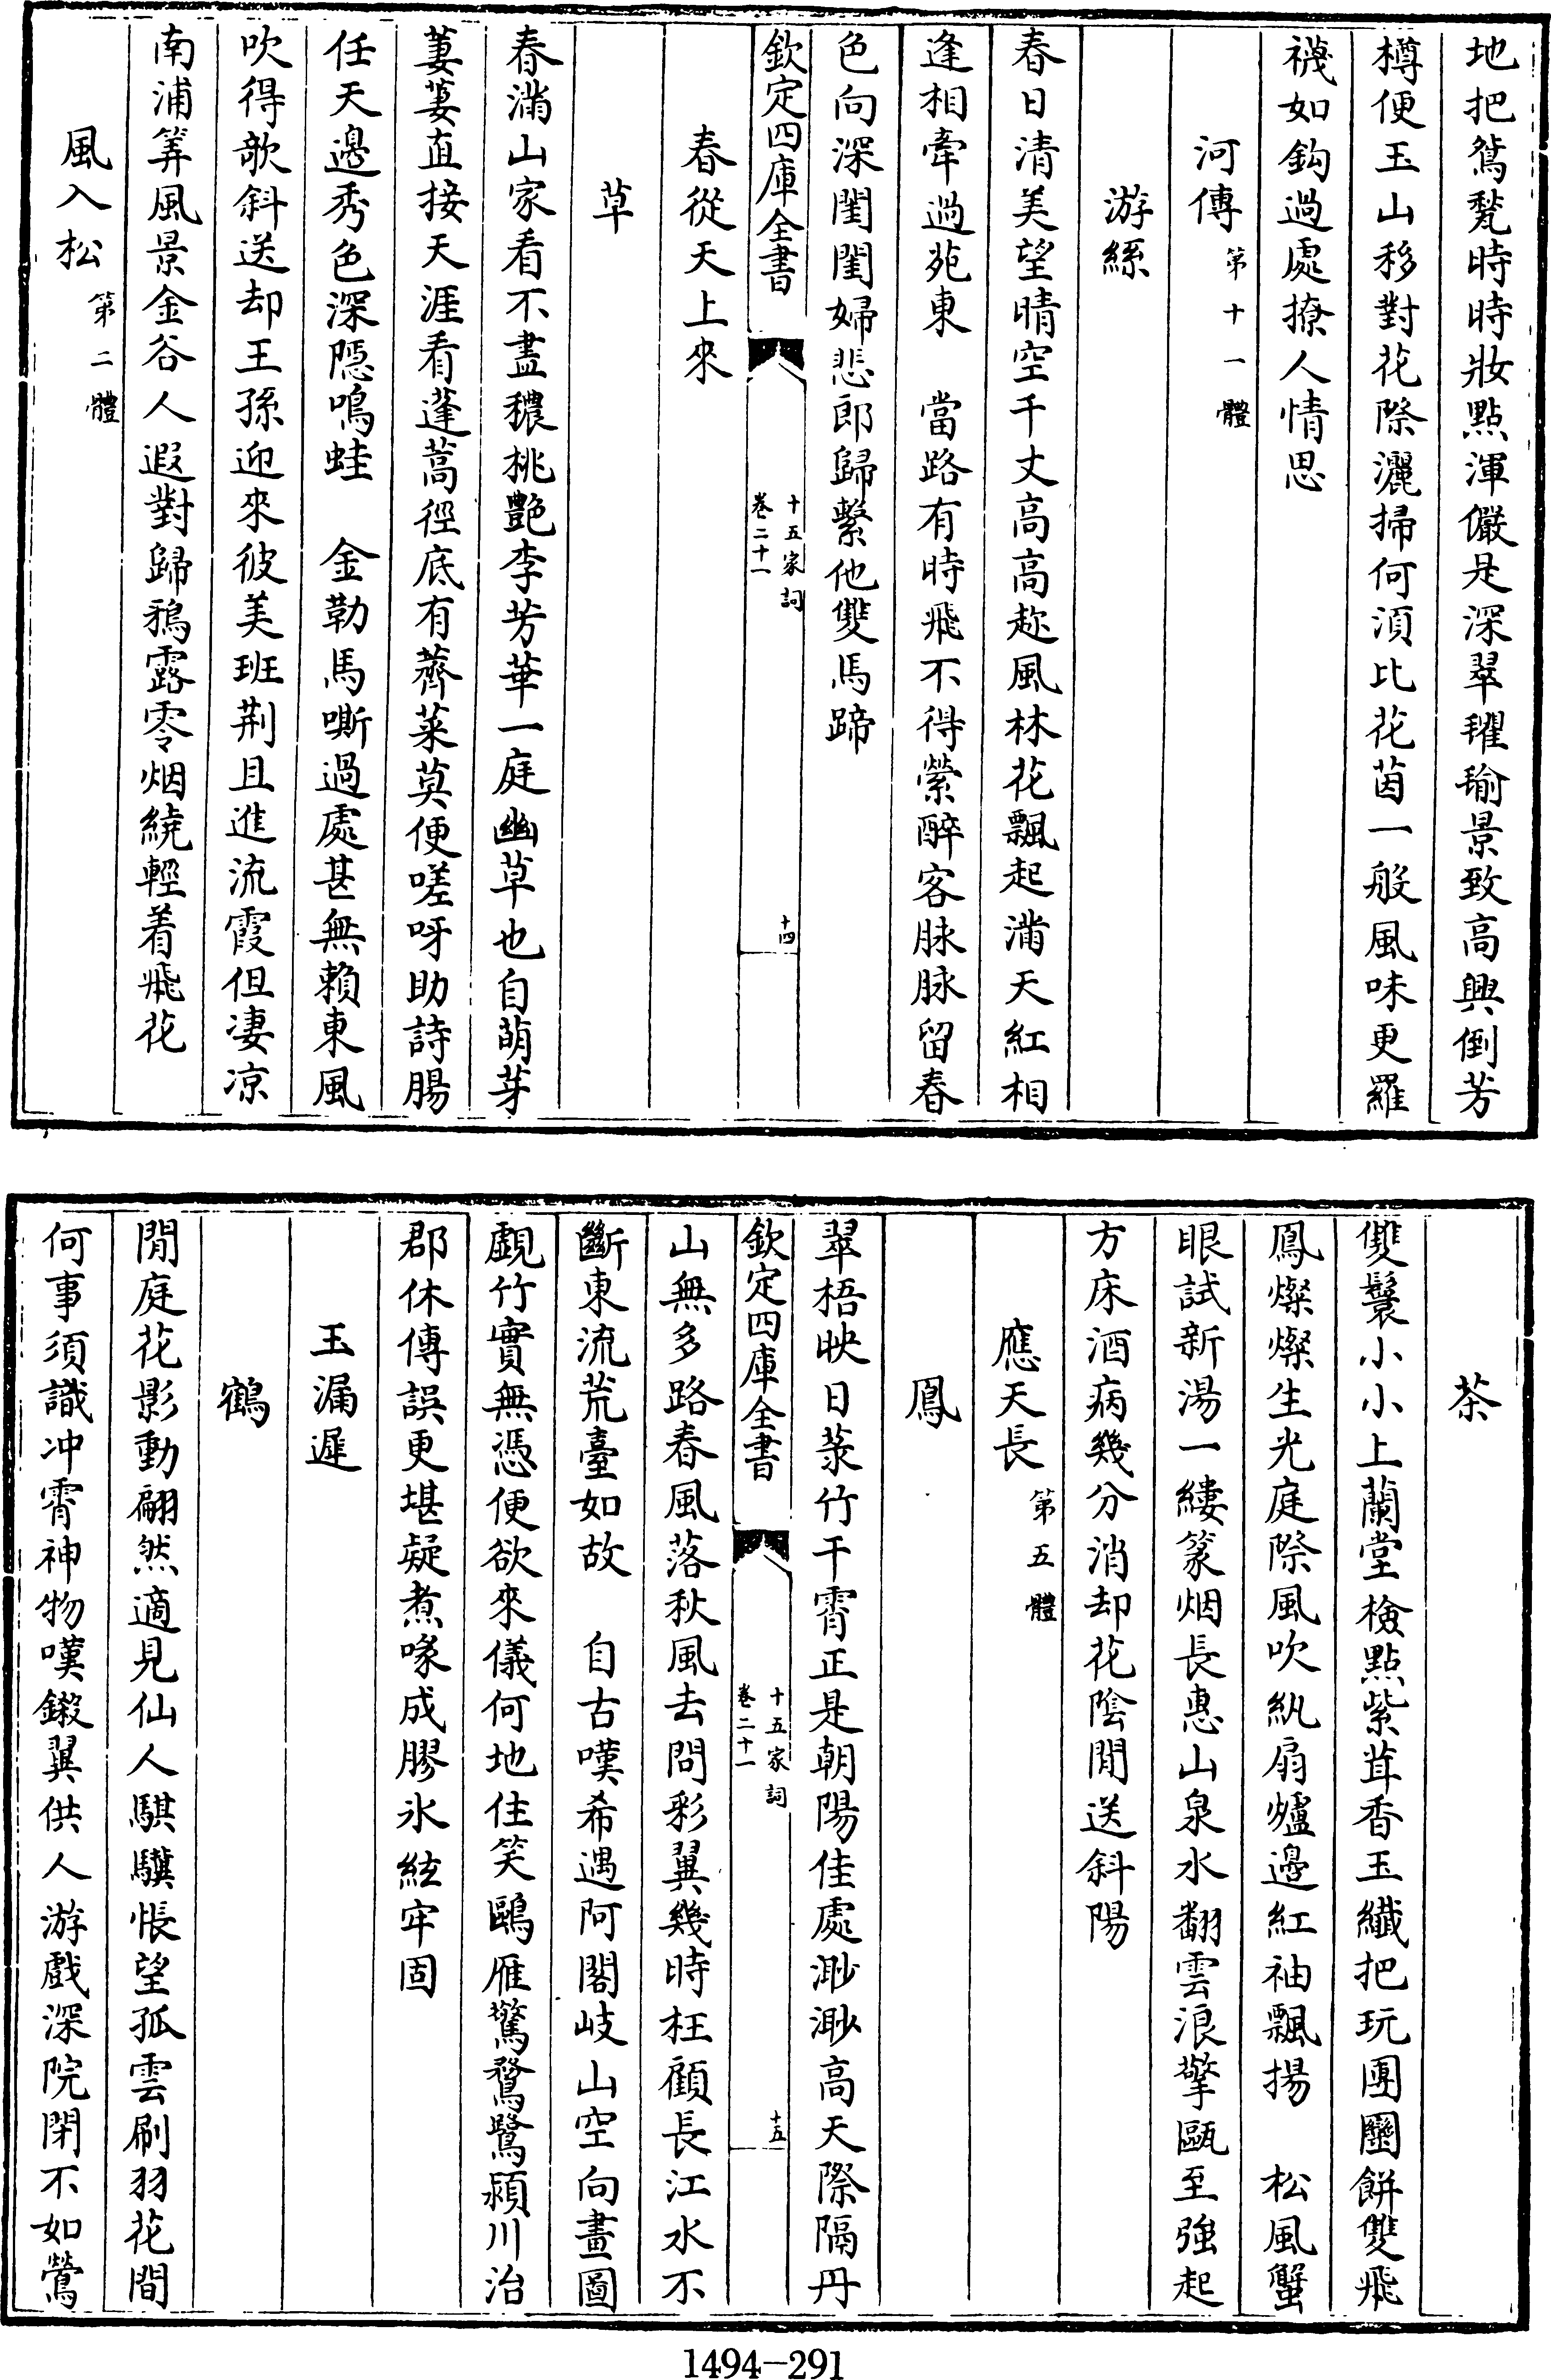 地把鴛甃時時妝點渾儼是深翠㻿瑜景致高興倒芳
樽便玉山移對花際灑掃何須比花茵一般風味更羅
襪如鈎過處撩人情思
河傳 第十一體
游絲
春日清美望晴空千丈高高趂風林花飄起滿天紅相
逢相牽過苑東　當路有時飛不得縈醉客脉脉留春
色向深閨閨婦悲郎歸繫他雙馬蹄
欽定四庫全書　十五家詞　卷二十一　十四
春從天上來
草
春滿山家看不盡穠桃艷李芳華一庭幽草也自萌芽
萋萋直接天涯看蓬蒿徑底有薺菜莫便嗟呀助詩腸
任天邊秀色深隱鳴蛙　金勒馬嘶過處甚無賴東風
吹得欹斜送却王孫迎來彼美班荆且進流霞但凄凉
南浦筭風景金谷人遐對歸鴉露零烟繞輕着飛花
風入松 第二體
茶
雙鬟小小上蘭堂檢點紫茸香玉纖把玩團圞餅雙飛
鳳燦燦生光庭際風吹紈扇爐邊紅袖飄揚　松風蟹
眼試新湯一縷篆烟長惠山泉水翻雲浪擎甌至強起
方床酒病幾分消却花陰閒送斜陽
應天長 第五體
鳳
翠梧映日菉竹干霄正是朝陽佳處渺渺高天際隔丹
欽定四庫全書　十五家詞　卷二十一　十五
山無多路春風落秋風去問彩翼幾時枉顧長江水不
斷東流荒臺如故　自古嘆希遇阿閣岐山空向畫圖
覷竹實無憑便欲來儀何地住笑鷗雁驚鶖鷺潁川治
郡休傳誤更堪疑煮喙成膠氷絃牢固
玉漏遲
鶴
閒庭花影動翩然適見仙人騏驥悵望孤雲刷羽花間
何事須識冲霄神物嘆鎩翼供人游戲深院閉不如鶯
1494-291